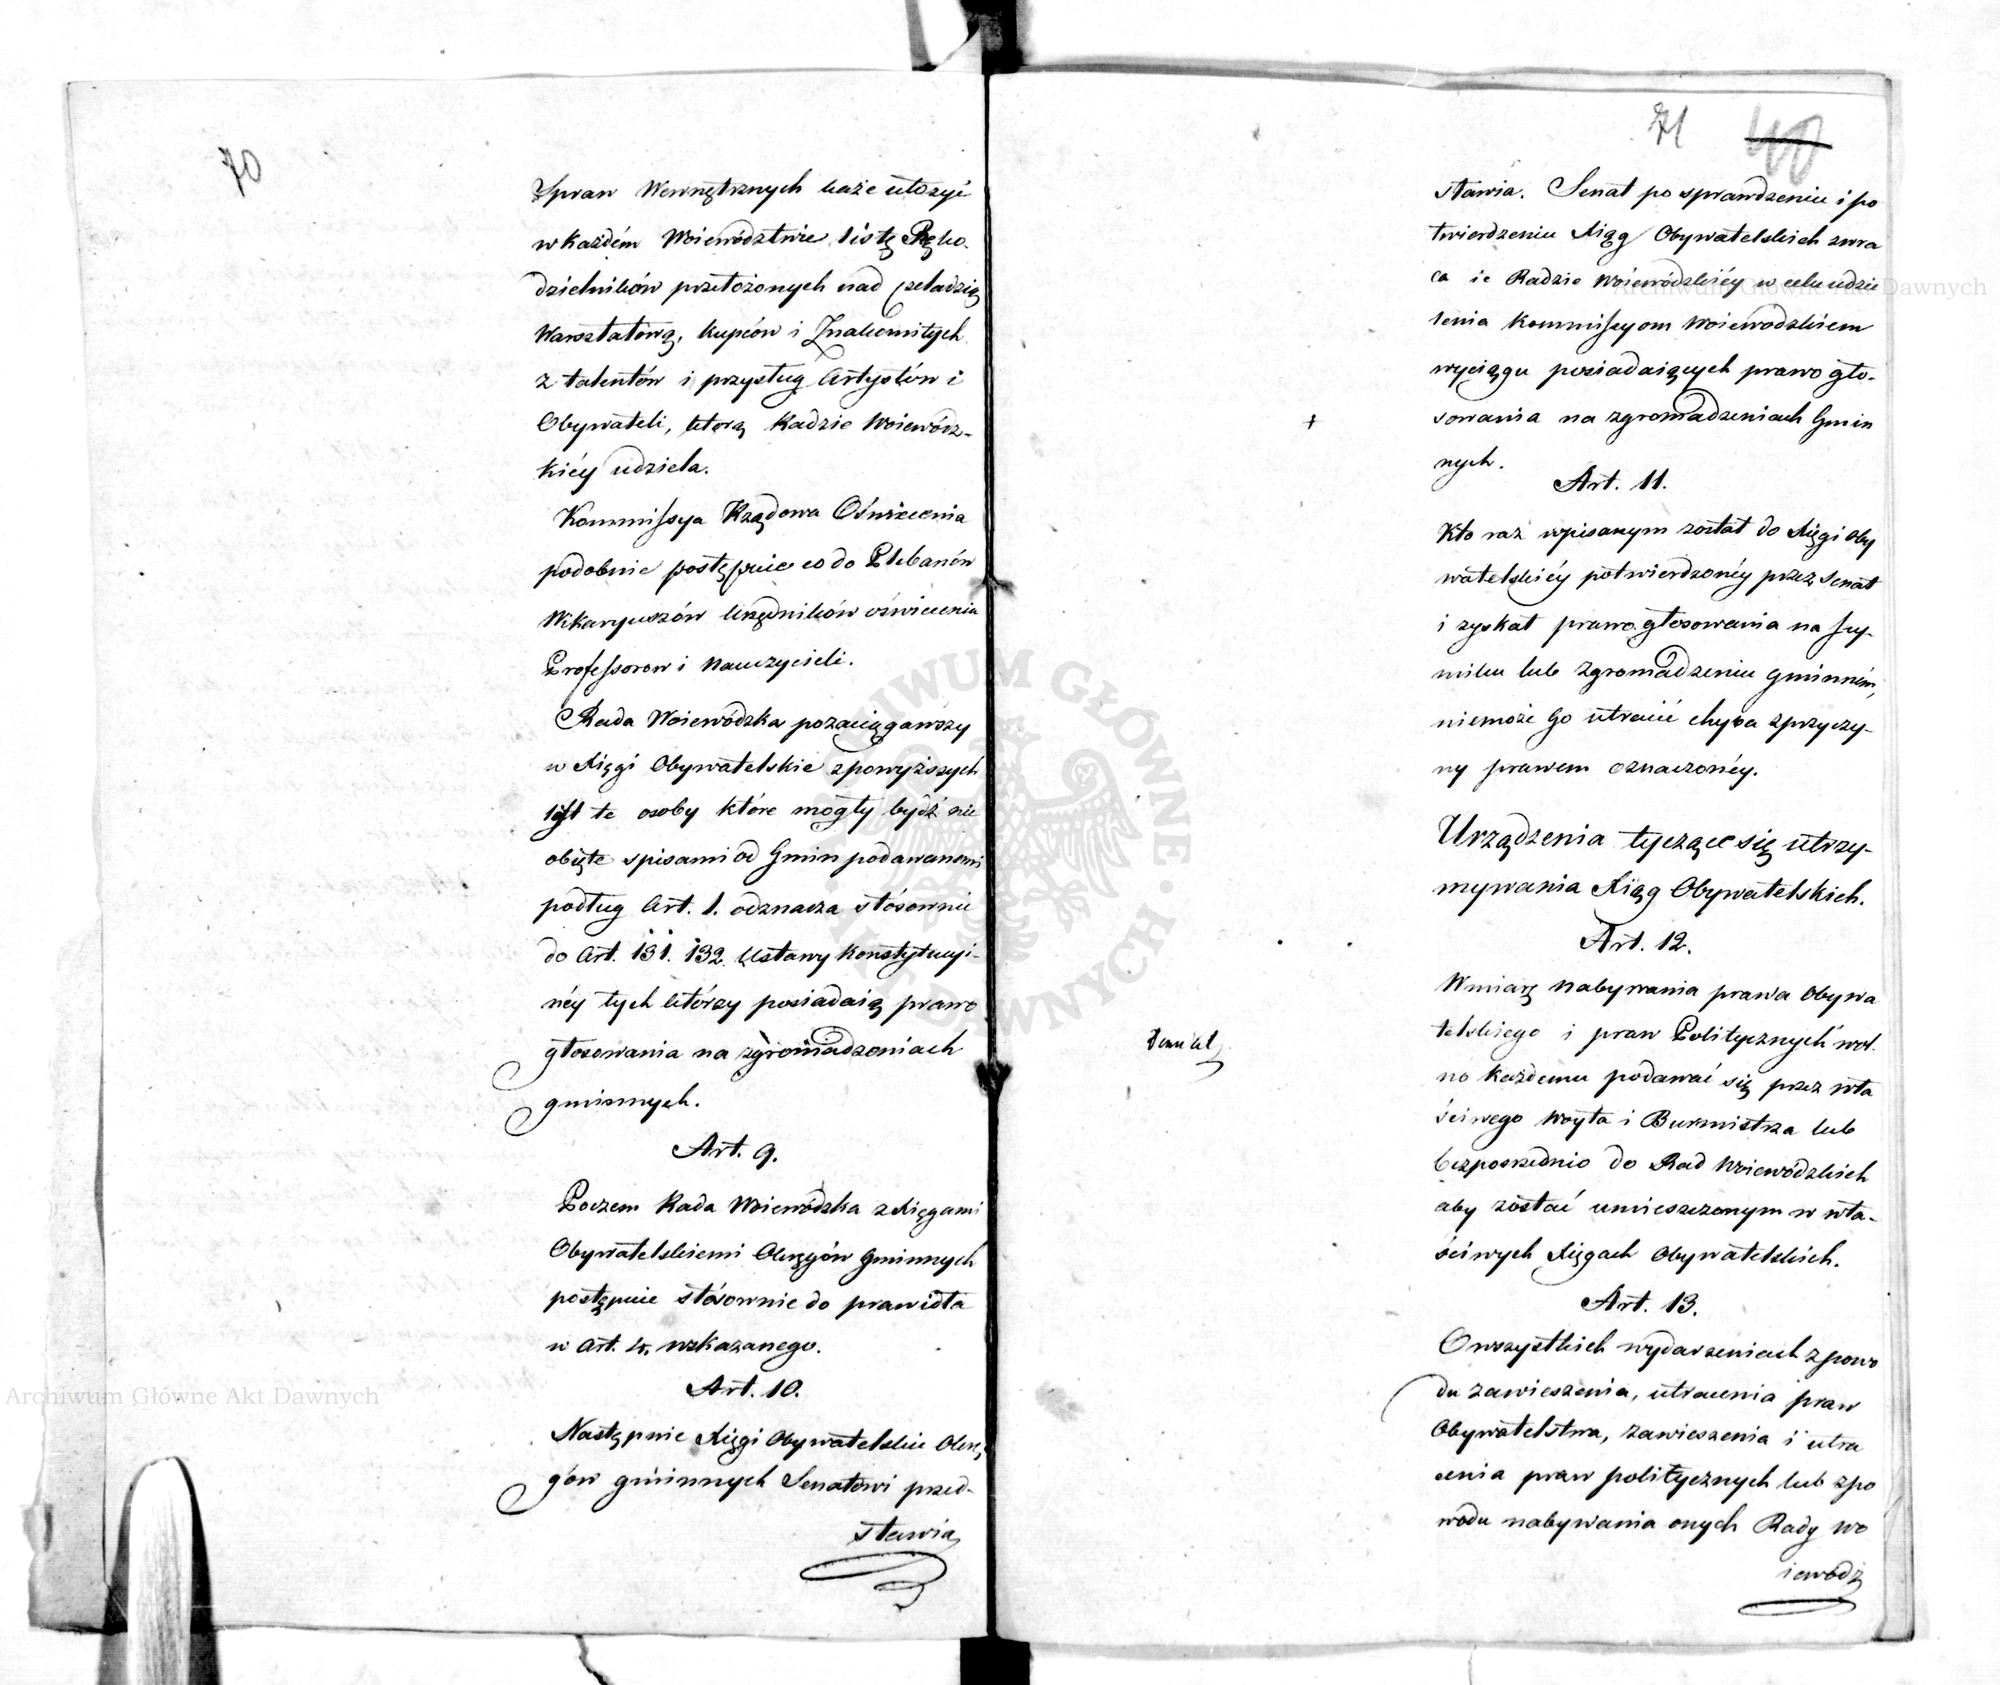 70
Spraw Wewnętrznych każe ułożyć
w każdém Woiewództwie listę Ręko-
dzielników przełożonych nad czeladzią
Warsztatową, kupców i Znakomitych
z talentów i przysług Artystów i
Obywateli, którą Radzie Woiewódz-
kiéy udziela.
Kommissya Rządowa Oświecenia
podobnie postępuie co do Plebanów
Wikaryuszów Urzędników oświecenia
Professorow i Nauczycieli.
Rada Woiewódzka pozaciągawszy
w Xięgi Obywatelskie z powyższych
list te osoby które mogły bydź nie
obięte spisami od Gmin podawanemi
podług Art. 1. odznacza stósownie
do Art. 131. 132. Ustawy Konstytucyi-
néy tych którzy posiadaią prawo
głosowania na zgromadzeniach
gminnych.
Art. 9.
Poczem Rada Woiewódzka z Xięgami
Obywatelskiemi Okręgów Gminnych
postępuie stósownie do prawidła
w Art. 4. wskazanego.
Art. 10.
Następnie Xięgi Obywatelskie Okrę
gów gminnych Senatowi przed-
stawia
71 40
stawia. Senat po sprawdzeniu i po
twierdzeniu Xiąg Obywatelskich zwra
ca ie Radzie Woiewódzkiéy w celu udzie
lenia Kommissyom Woiewodzkiem
wyciągu posiadaiących prawo gło-
sowania na zgromadzeniach Gmin
nych.
Art. 11.
Kto raz wpisanym został do Xięgi Oby
watelskiéy potwierdzonéy przez Senat
i zyskał prawo głosowania na Sey-
miku lub Zgromadzeniu gminném,
niemoże Go utracić chyba z przyczy-
ny prawem oznaczonéy.
Urządzenia tyczące się utrzy-
mywania Xiąg Obywatelskich.
Art. 12.
W miarę nabywania prawa Obywa
telskiego i praw Politycznych wol
no każdemu podawać się przez wła
ściwego Woyta i Burmistrza lub
bezpośrednio do Rad Woiewódzkich
aby zostać umieszczonym w wła-
ściwych Xięgach Obywatelskich.
Art. 13.
O wszystkich wydarzeniach z powo
du zawieszenia, utracenia praw
Obywatelstwa, zawieszenia i utra
cenia praw politycznych lub z po
wodu nabywania onych Rady Wo
iewódz
Archiwum Główne Akt Dawnych
Archiwum Główne Akt Dawnych
ARCHIWUM GŁÓWNE AKT DAWNYCH